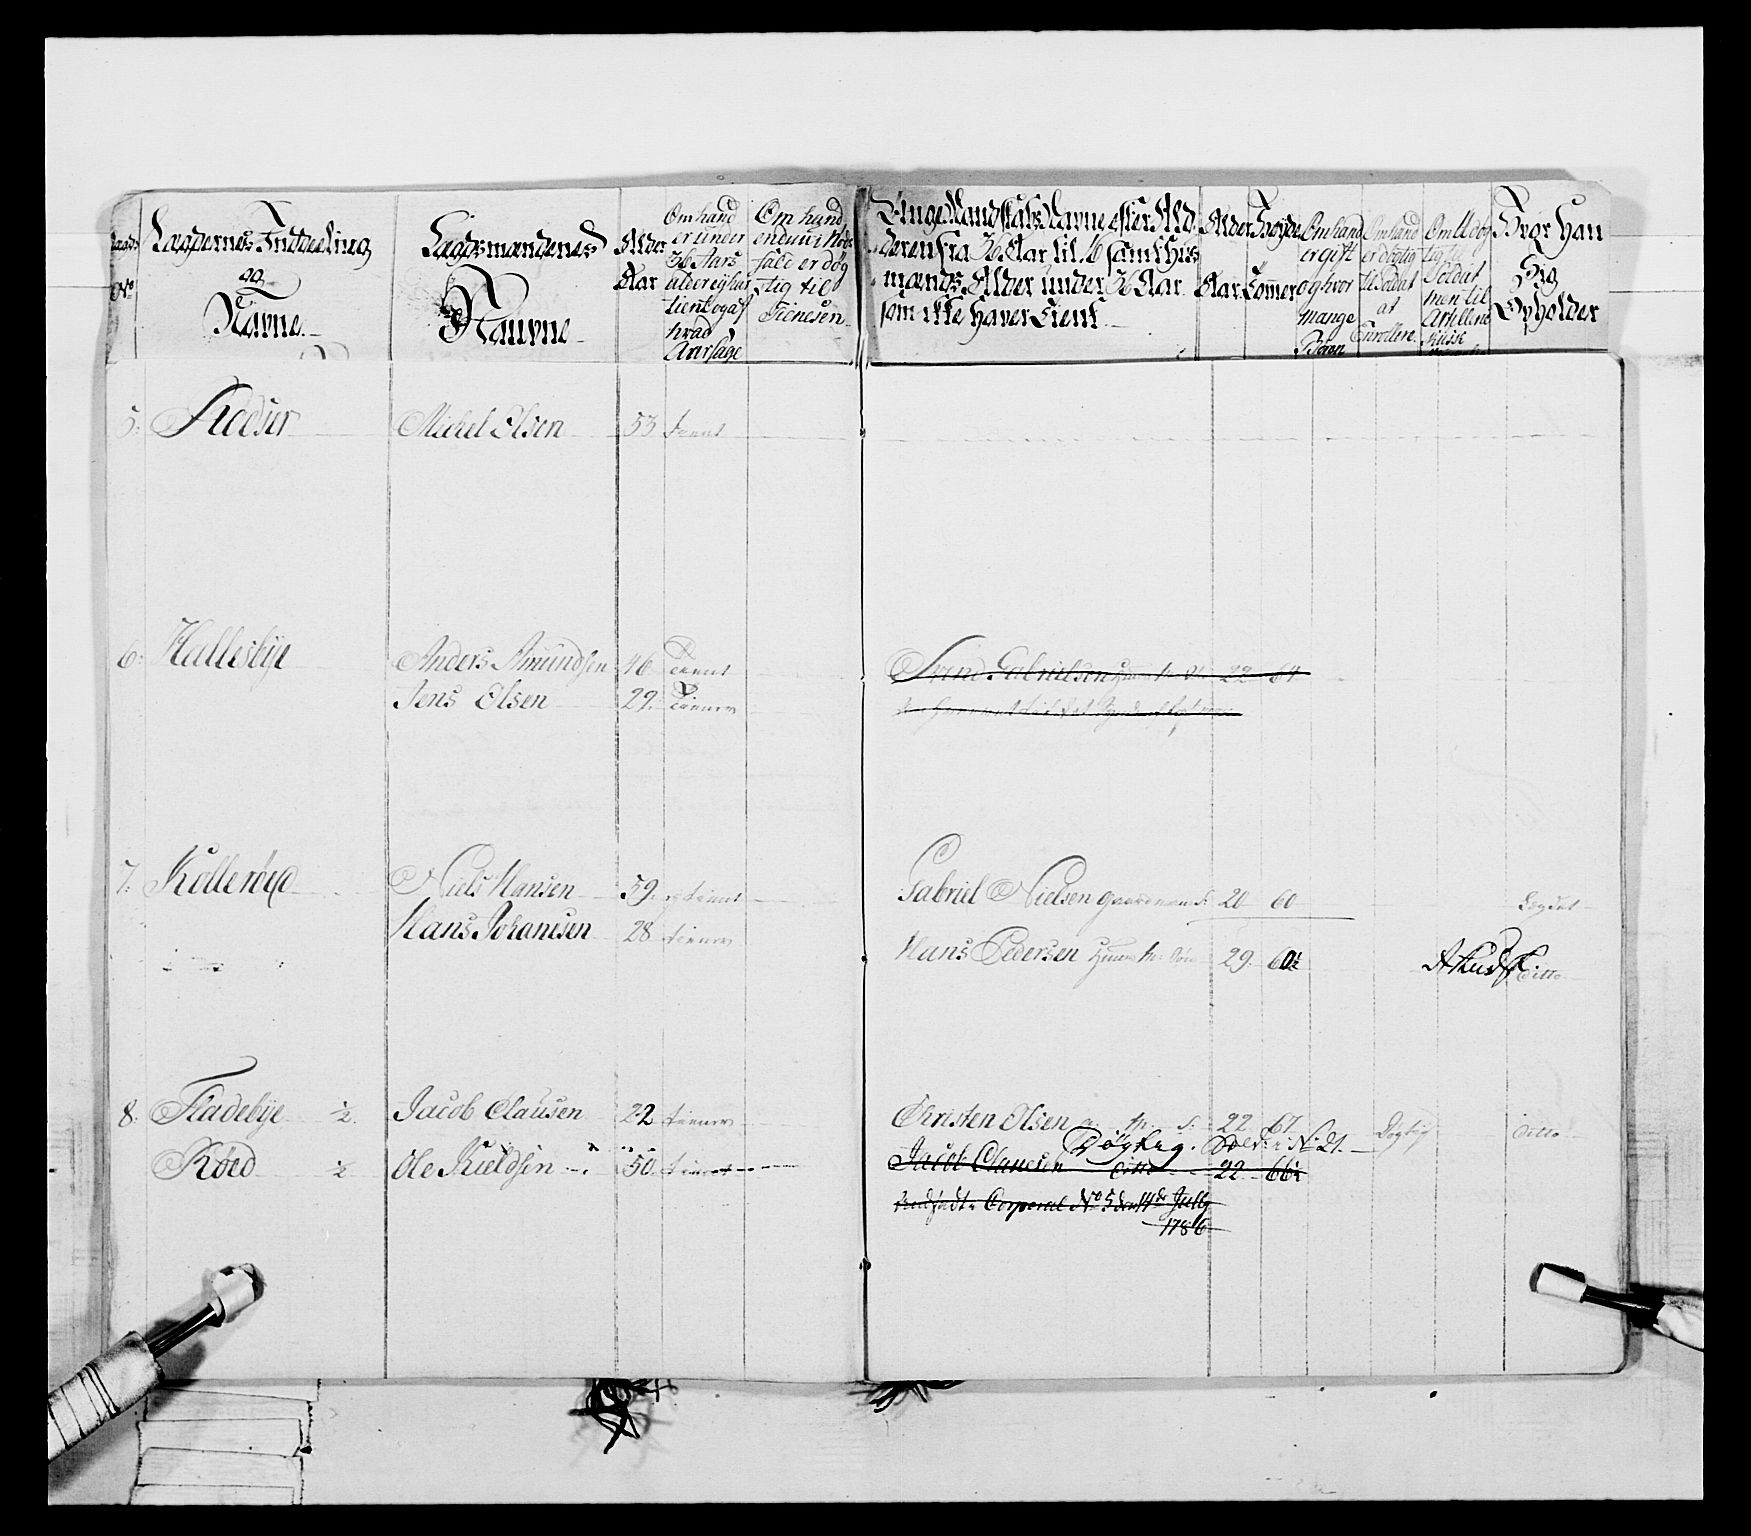 Lagdernes Inddeeling
og
Navne
Lagdsmændenes
Naufne
Alder
Aar
Om hand
er under
36 Aars
alder ej har
tient og af
hvad
Aarsage
Om hand
endnu i Nøds
fald er døg
tig til
Tienesen
Unge Mandskabs Navne efter Ald
deren fra 36 Aar til 16 samt Huus
mænds Alder under 36 Aar
som ikke haver tient
Alder
Aar
Høyde
Tomer
Om hand
er gift
og hvor
mange
Børn
Om hand
er dygtig
til Soldat
at
Enrollere
Om U døg
tig til
Soldat
men til
Artellerie
Kusk
Hvor Han
Sig
Opholder
5: Michel Olsen 53 tient
6: Hallesbye Anders Amundsen 46 Tient
Svend Gabrielsen 22 64
Jens Olsen 29 Tiener
7: Kollerøed Niels Hansen 59 tient
Gabriel Nielsen Gaardmand S: 20 60 Lagdet
Hans Johanesen 28 tiener
Hans Pedersen 29 60½ A Kusk ditto
8: Fladebye ½ Jacob Clausen 22 tiener
Christen Olsen S: 22 67 Dygtig ditto
Røed ½ Ole Kieldsen 50 tient
Jacob Clausen ditto 22 66½
Corporal No 5 den 14de July
1786